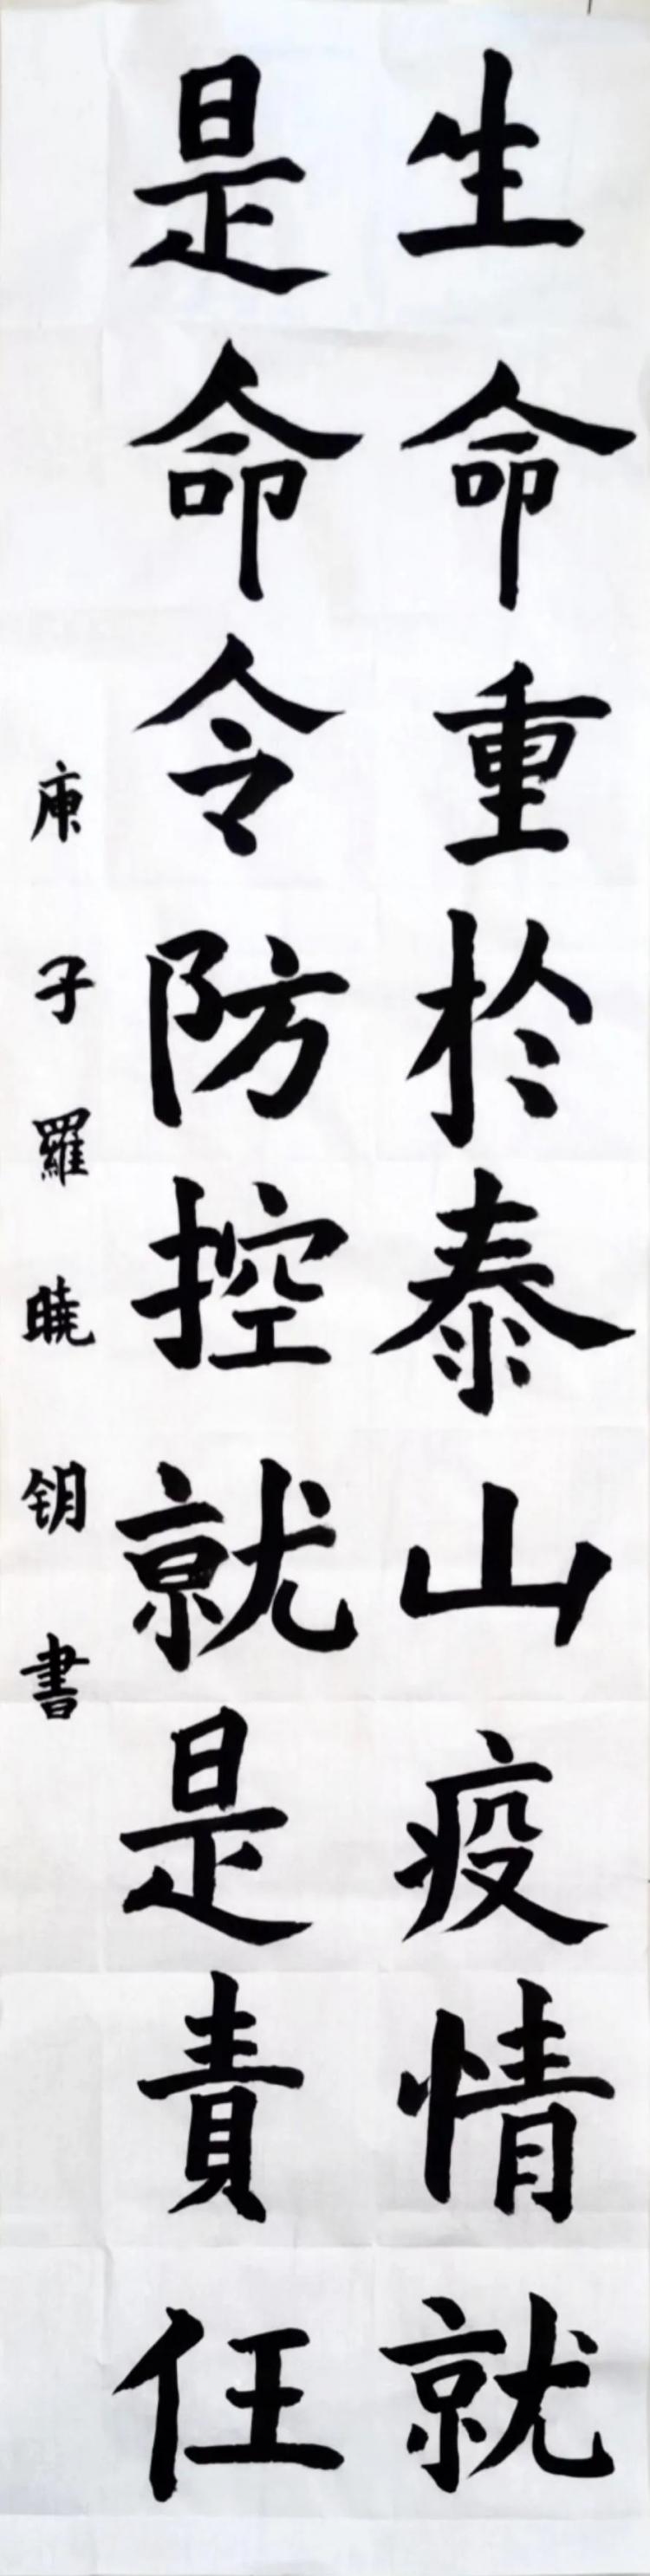 生命重於泰山疫情就
是命令防控就是責任
庚子羅曉钥書